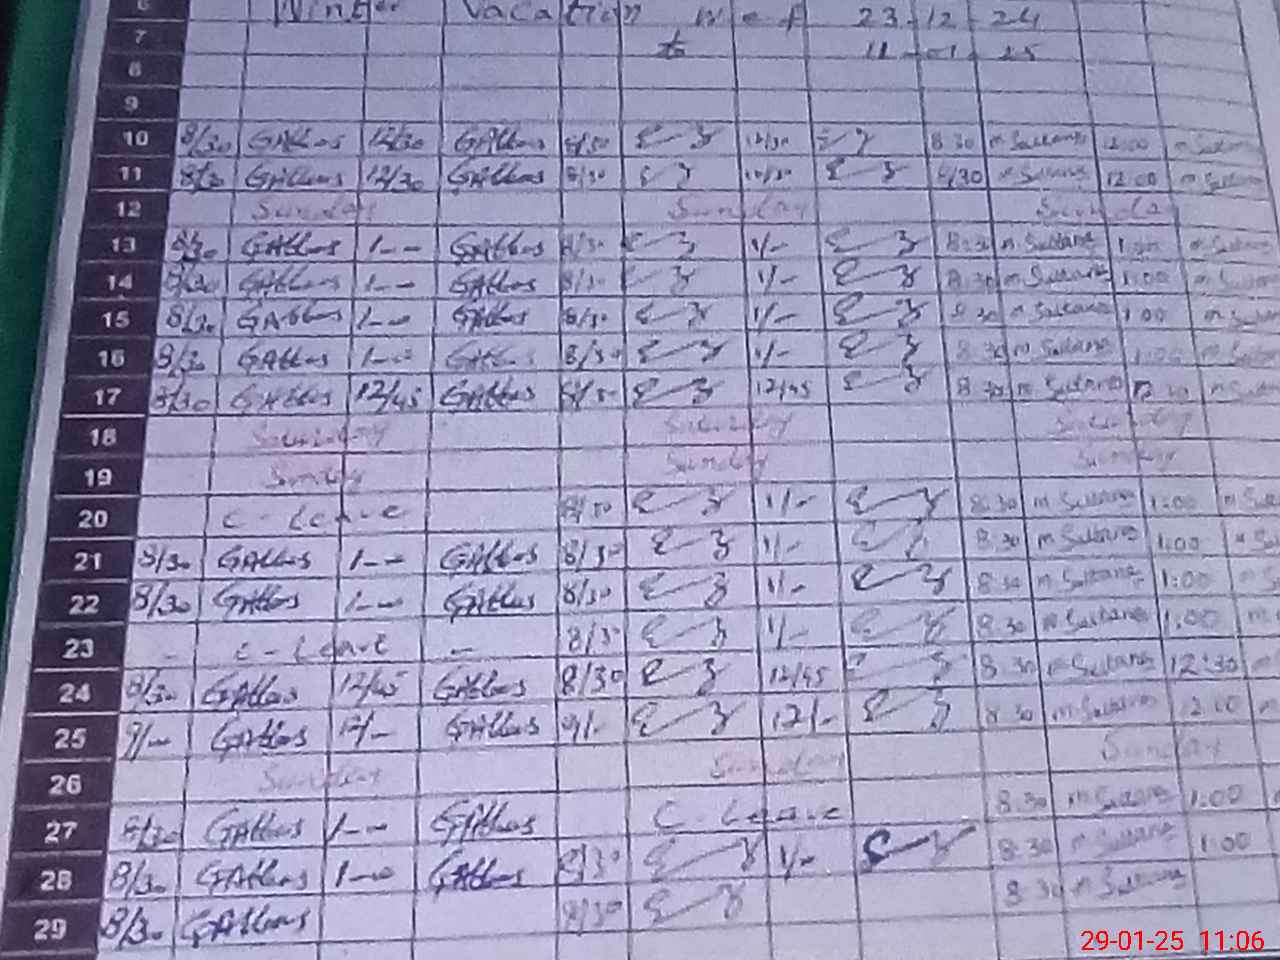 6 Winter Vacation w.e.f 23-12-24
7 to 11-01-25
8
9
10 8/30 GAbbas 12/30 GAbbas 8/30 12/30 8 30 m Sultana 12:00
11 8/30 GAbbas 12/30 GAbbas 8/30 12/30 8/30 m Sultana 12:00
12 Sunday Sunday Sunday
13 8/30 GAbbas 1-- GAbbas 8/30 1/- 8:30 m Sultana
14 8/30 GAbbas 1-- GAbbas 8/30 1/- 8:30 m Sultana 1:00
15 8/30 GAbbas 1-- GAbbas 8/30 1/- 8 30 m Sultana 1:00
16 8/30 GAbbas 1-- GAbbas 8/30 1/- 8:30 m Sultana
17 8/30 GAbbas 12/45 GAbbas 8/30 12/45 8:30 m Sultana
18 Saturday Saturday Saturday
19 Sunday Sunday Sunday
20 C-Leave 8/30 1/- 8:30 m Sultana 1:00
21 8/30 GAbbas 1-- GAbbas 8/30 1/- 8:30 m Sultana 1:00
22 8/30 GAbbas 1-- GAbbas 8/30 1/- 8:30 m Sultana 1:00
23 - C-Leave - 8/30 1/- 8:30 m Sultana 1:00
24 8/30 GAbbas 12/45 GAbbas 8/30 12/45 8:30 m Sultana 12:30
25 9/-- GAbbas 12/- GAbbas 9/- 12/- 8:30 m Sultana 12:00
26 Sunday Sunday Sunday
27 8/30 GAbbas 1-- GAbbas C-Leave 8:30 m Sultana 1:00
28 8/30 GAbbas 1-- GAbbas 8/30 1/- 8:30 m Sultana 1:00
29 8/30 GAbbas 8/30 8:30 m Sultana
29-01-25 11:06